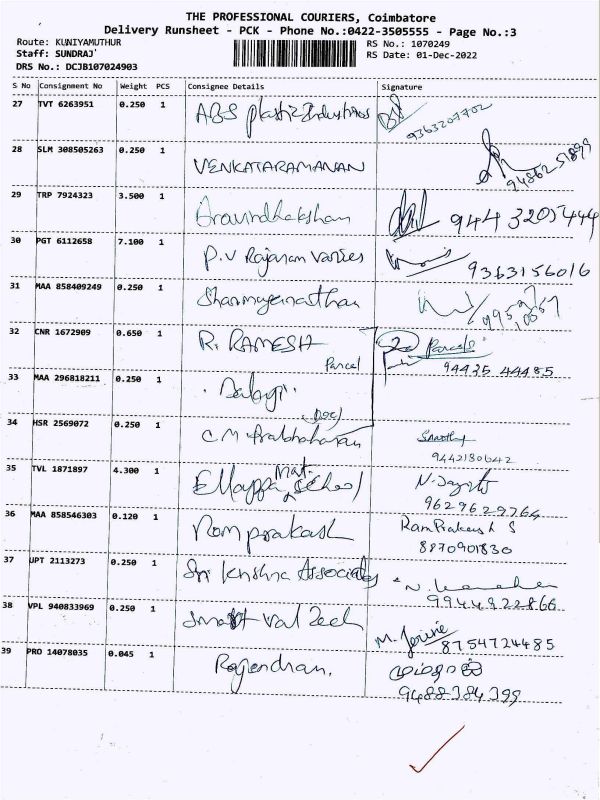 THE PROFESSIONAL COURIERS, Coimbatore
Delivery Runsheet - PCK - Phone No.:0422-3505555 - Page No.:3
Route: KUNIYAMUTHUR RS No.: 1070249
Staff: SUNDRAJ RS Date: 01-Dec-2022
DRS No.: DCJB107024903
S No Consignment No Weight PCS Consignee Details Signature
27 TVT 6263951 0.250 1 ABS plastic Industries 9363207702
28 SLM 308505263 0.250 1 VENKATARAMANAN
29 TRP 7924323 3.500 1 9443205444
30 PGT 6112658 7.100 1 P.V Rajanam Varies 9363156016
31 MAA 858409249 0.250 1
32 CNR 1672909 0.650 1 R. RAMESH Parcel 2 Parcels
94435 44485
33 MAA 296818211 0.250 1
34 HSR 2569072 0.250 1 (Doc) C.M Prabhaharan
9442180642
35 TVL 1871897 4.300 1 Ellappa mat. School
9629629764
36 MAA 858546303 0.120 1 Ramprakash S
8870901830
37 UPT 2113273 0.250 1 Sri Krishna Associates
9944922866
38 VPL 940833969 0.250 1 8754724485
39 PRO 14078035 0.045 1 Rajendran.
9488384399